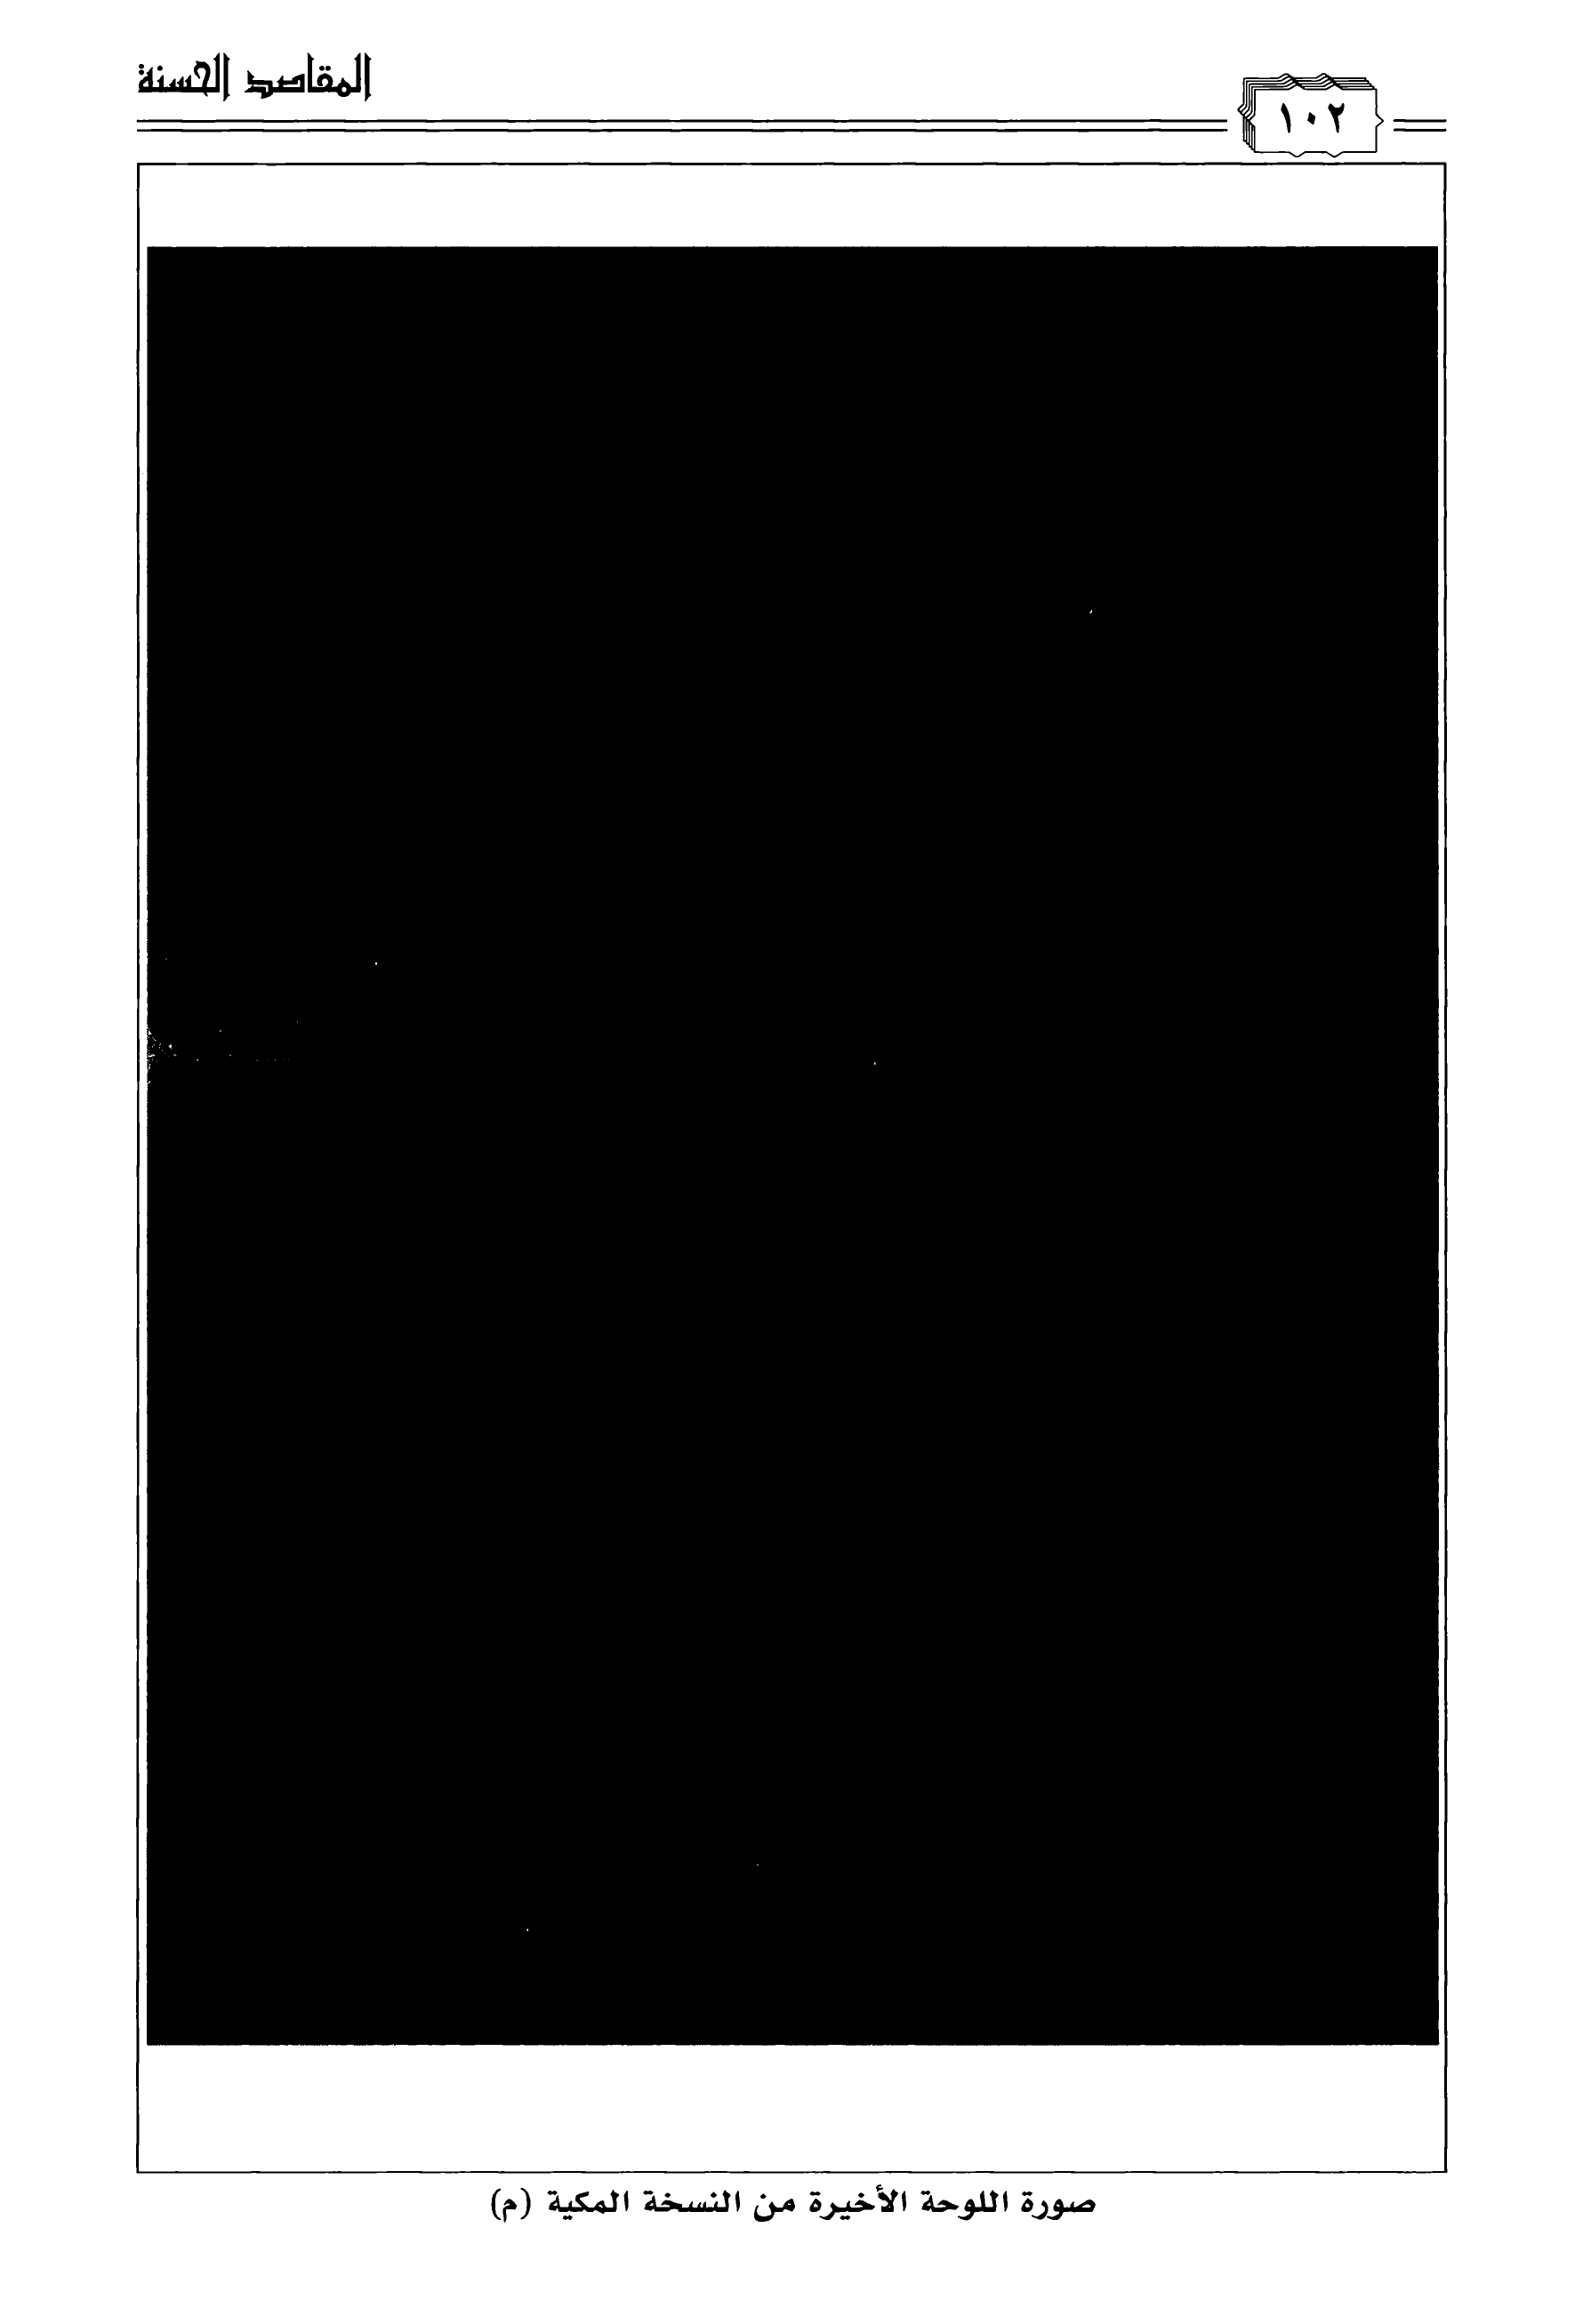 المقاصد الحسنة
١٠٢
صورة اللوحة الأخيرة من النسخة المكية (م)